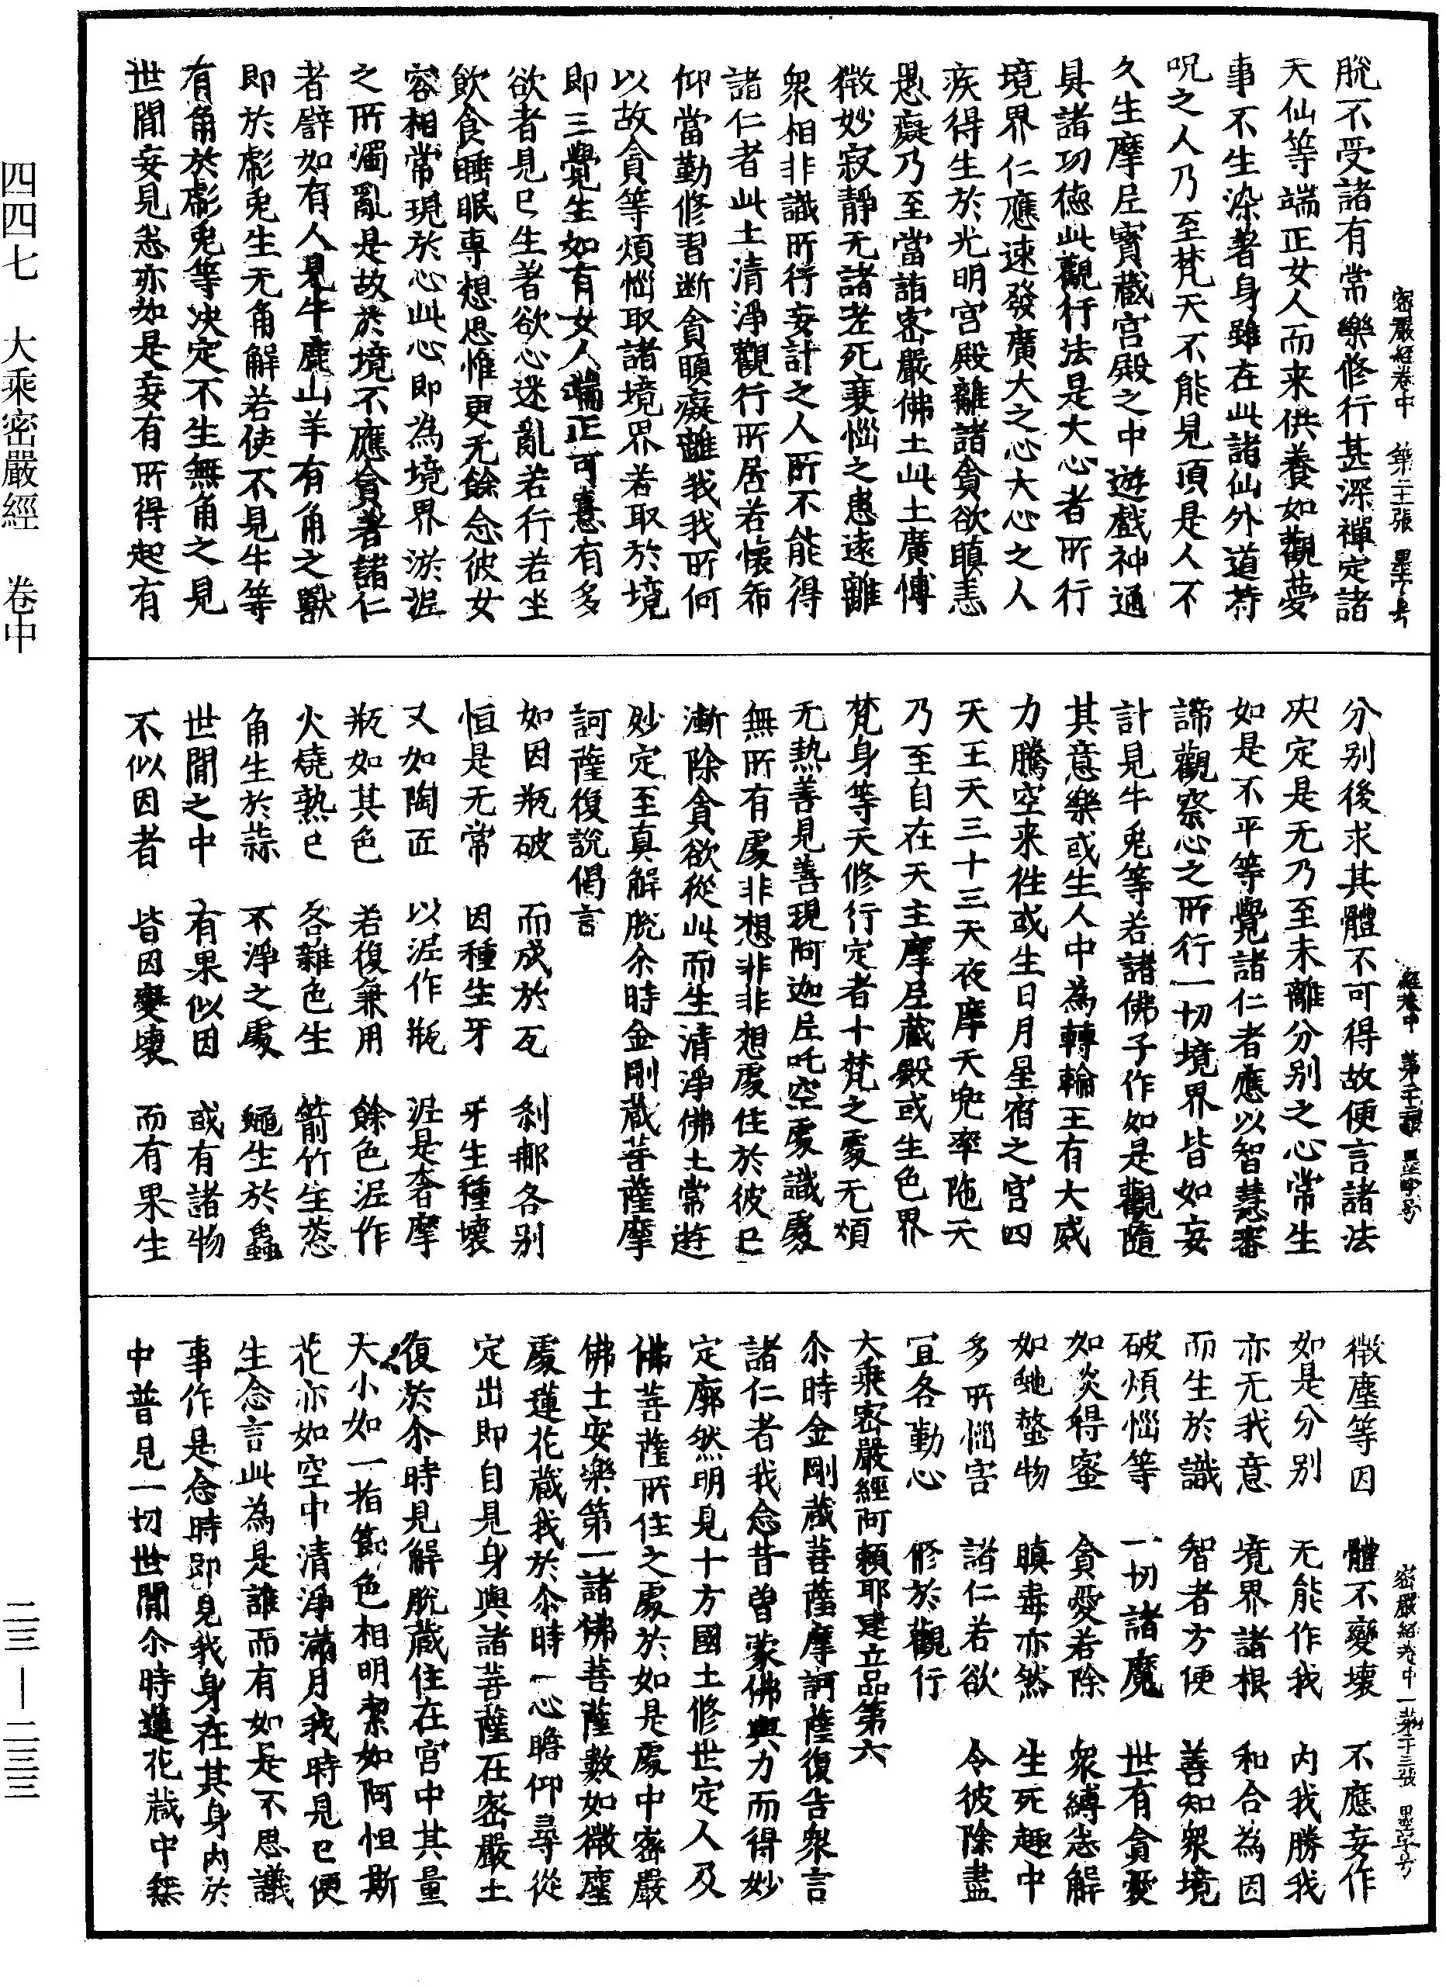 密嚴經卷中 第二十張 墨字号
脫不受諸有常樂修行甚深禪定諸
天仙等端正女人而来供養如觀夢
事不生染著身雖在此諸仙外道符
呪之人乃至梵天不能見頂是人不
久生摩尼寶藏宮殿之中遊戲神通
具諸功德此觀行法是大心者所行
境界仁應速發廣大之心大心之人
疾得生於光明宮殿離諸貪欲瞋恚
愚癡乃至當詣密嚴佛土此土廣博
微妙寂靜无諸老死衰惱之患遠離
衆相非識所行妄計之人所不能得
諸仁者此土清淨觀行所居若懷希
仰當勤修習断貪瞋癡離我我所何
以故貪等煩惱取諸境界若取於境
即三覺生如有女人端正可憙有多
欲者見已生著欲心迷亂若行若坐
飲食睡眠專想思惟更无餘念彼女
容相常現於心此心即為境界淤泥
之所濁亂是故於境不應貪著諸仁
者譬如有人見牛鹿山羊有角之獸
即於彪兎生无角解若使不見牛等
有角於彪兎等决定不生無角之見
世間妄見悉亦如是妄有所得起有
經卷中 第二十張 墨字号
分别後求其體不可得故便言諸法
决定是无乃至未離分别之心常生
如是不平等覺諸仁者應以智慧審
諦觀察心之所行一切境界皆如妄
計見牛兎等若諸佛子作如是觀隨
其意樂或生人中為轉輪王有大威
力騰空来往或生日月星宿之宮四
天王天三十三天夜摩天兜率陁天
乃至自在天主摩尼藏殿或生色界
梵身等天修行定者十梵之處无煩
无熱善見善現阿迦尼吒空處識處
無所有處非想非非想處住於彼已
漸除貪欲從此而生清淨佛土常遊
妙定至真解脫尒時金剛藏菩薩摩
訶薩復說偈言
如因瓶破 而成於瓦 刹那各别
恒是无常 因種生牙 牙生種壞
又如陶匠 以泥作瓶 泥是奢摩
瓶如其色 若復兼用 餘色泥作
火燒熟已 各雜色生 箭竹生葱
角生於蒜 不淨之處 蠅生於蟲
世間之中 有果似因 或有諸物
不似因者 皆因變壞 而有果生
密嚴經卷中 第二十三張 墨字号
微塵等因 體不變壞 不應妄作
如是分别 无能作我 内我勝我
亦无我意 境界諸根 和合為因
而生於識 智者方便 善知衆境
破煩惱等 一切諸魔 世有貪愛
如炎得蜜 貪愛若除 衆縛悉解
如虵螫物 瞋毒亦然 生死趣中
多所惱害 諸仁若欲 令彼除盡
冝各勤心 修於觀行
大乘密嚴經阿頼耶建立品第六
尒時金剛藏菩薩摩訶薩復告衆言
諸仁者我念昔曾蒙佛與力而得妙
定廓然明見十方國土修世定人及
佛菩薩所住之處於如是處中密嚴
佛土安樂第一諸佛菩薩數如微塵
處蓮花藏我於尒時一心瞻仰尋從
定出即自見身與諸菩薩在密嚴土
復於尒時見解脫藏住在宮中其量
大小如一指節色相明潔如阿怛斯
花亦如空中清淨滿月我時見已便
生念言此為是誰而有如是不思議
事作是念時即見我身在其身内於
中普見一切世間尒時蓮花藏中無
四四七 大乘密嚴經 卷中
二三—二三三